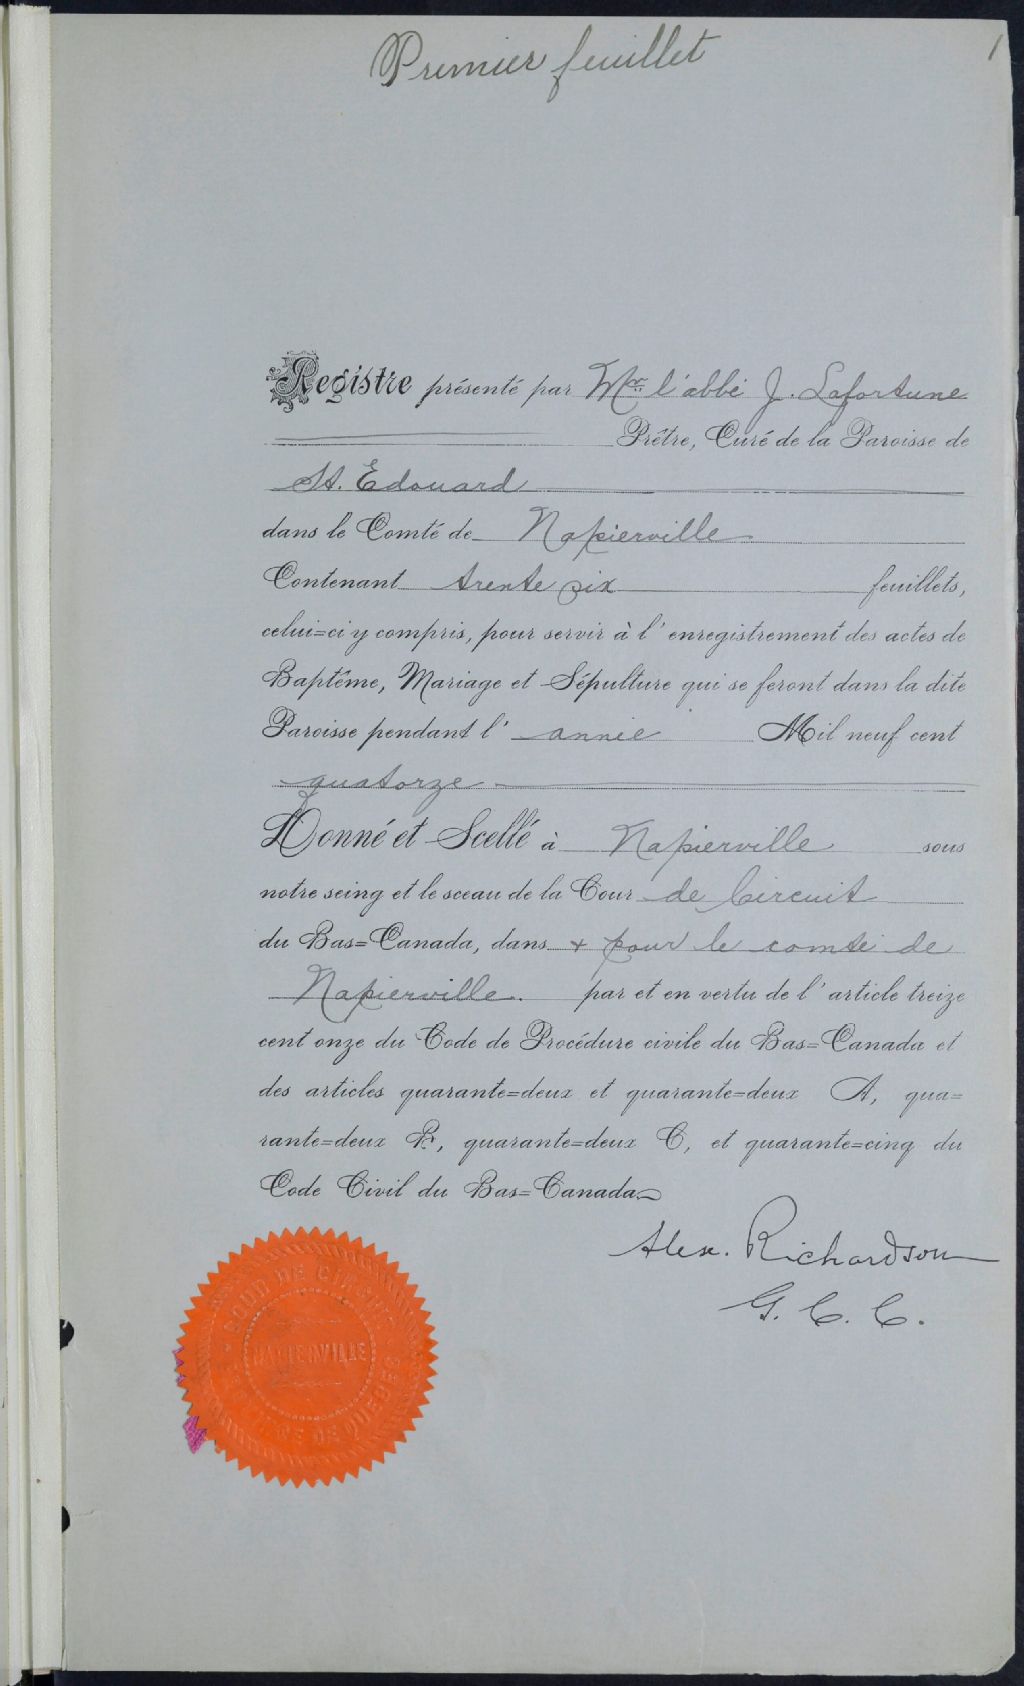 Premier feuillet
1
Registre présenté par Mr. l'abbé J. Lafortune
Prêtre, Curé de la Paroisse de
St. Edouard
dans le Comté de Napierville
Contenant trente six feuillets,
celui=ci y compris, pour servir à l'enregistrement des actes de
Baptême, Mariage et Sépulture qui se feront dans la dite
Paroisse pendant l'année Mil neuf cent
quatorze
Donné et Scellé à Napierville sous
notre seing et le sceau de la Cour de Circuit
du Bas=Canada, dans + pour le comté de
Napierville. par et en vertu de l'article treize
cent onze du Code de Procédure civile du Bas=Canada et
des articles quarante=deux et quarante=deux A, qua=
rante=deux B, quarante=deux C, et quarante=cinq du
Code Civil du Bas=Canada.
Alex. Richardson
G. C. C.
COUR DE CIRCUIT
NAPIERVILLE
DE QUEBEC